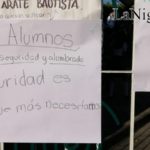 ARATE BAUTISTA
LaNig
Alumnos
seguridad y alumbrado
uridad es
ue más necesitamos